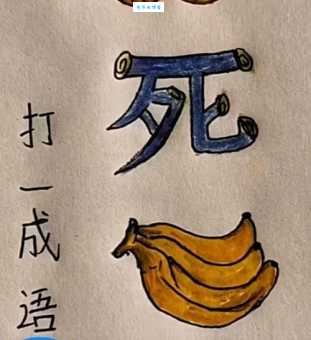 死
打一成语